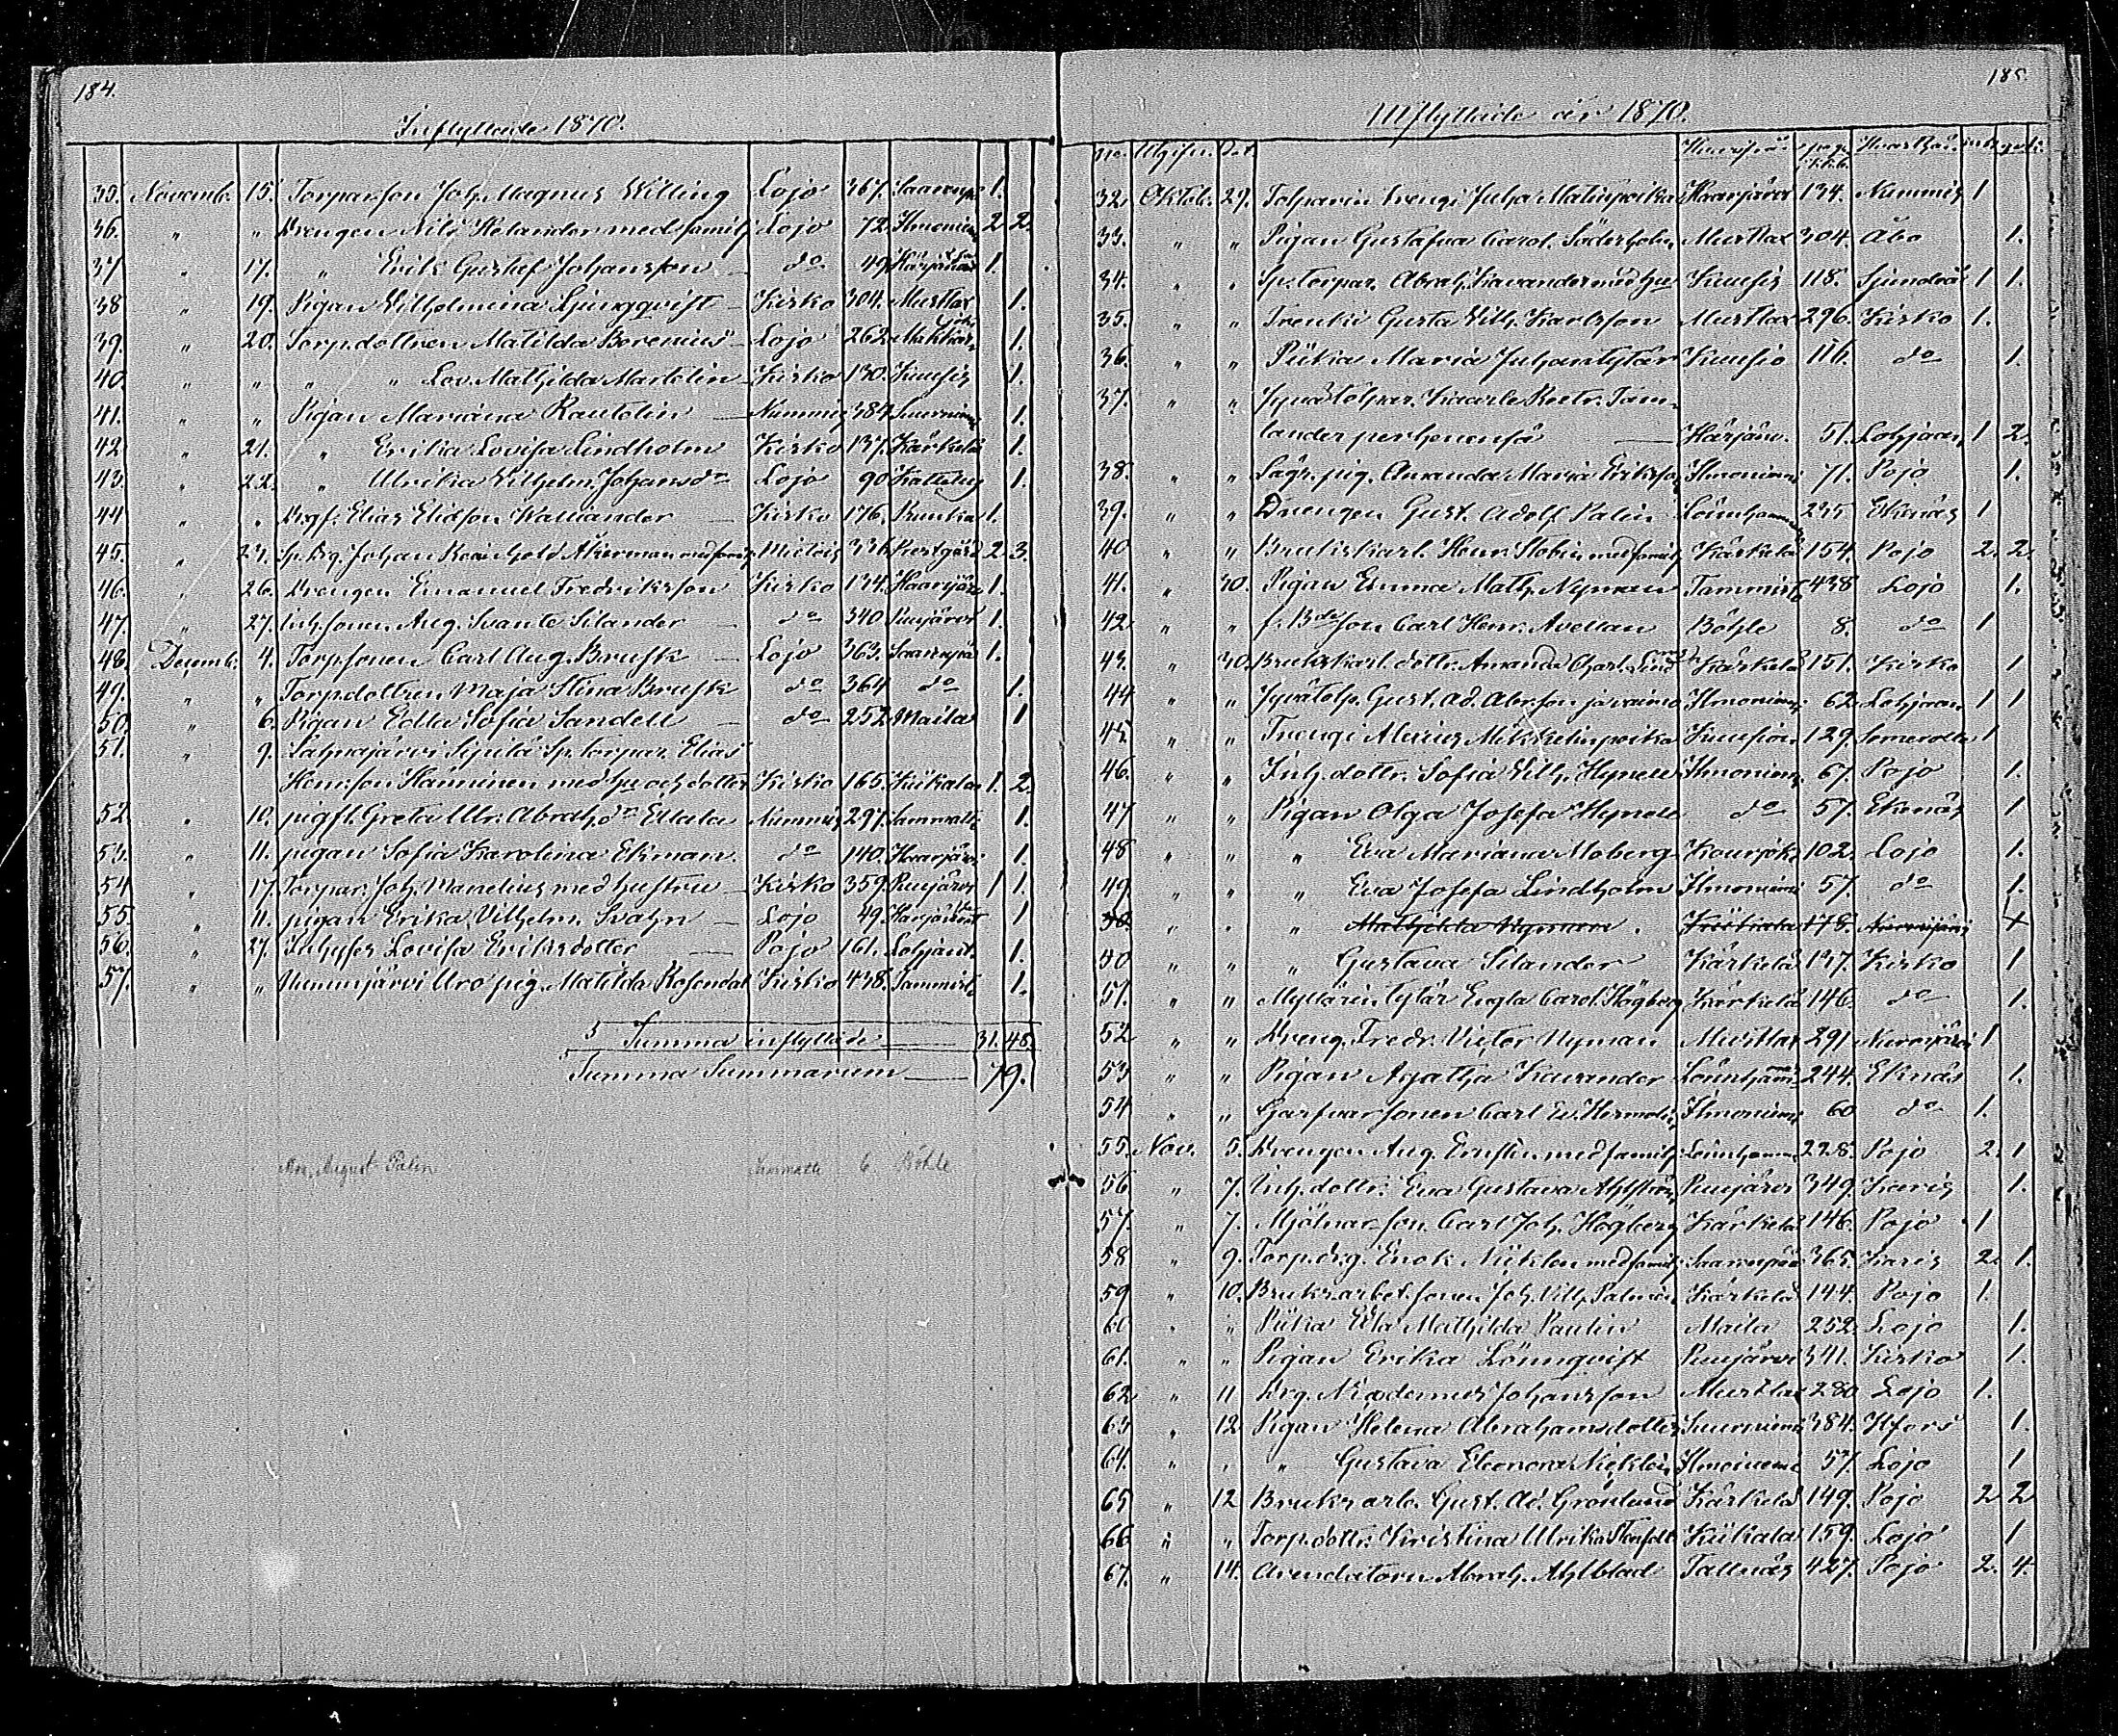 184.
Inflyttade 1870.
35. Novemb. 15. Torparson Joh. Magnus Willing Lojo 367. Saarenpä 1.
36. " " Drengen Nils Helander med familj Lojo 72. Ilmoniem 2 2.
37. " 17. " Erik Gustaf Johansson — do 49. 1.
38 " 19. Pigan Vilhelmina Ljungqvist — Kisko 304. Mustlax 1.
39. " 20. Torp.dottren Matilda Borenius — Lojo 262. 1.
40. " " " " Lov. Mathilda Martelin — Kisko 130. Kuusis 1.
41. " " Pigan Mariana Rautelin — Nummis 384. 1.
42 " 21. " Erika Lovisa Lindholm Kisko 137. Kärkelä 1.
43. " 22. " Ulrika Vilhelm. Johansdr Lojo 90 1.
44 " " Elias Eliasson — Kisko 176. 1.
45. " 23. Sp. Drg. Johan Reinhold Åkerman med familj Mietois 336. Prestgård 2. 3.
46. " 26. Drengen Emanuel Fredriksson Kisko 134. Haarjärv 1.
47. " 27. Inh.sonen Aug. Svante Silander — do 340 Puujärvi 1.
48. Decemb. 4. Torp.sonen Carl Aug. Brusk — Lojo 363. Saarenpä 1.
49. " " Torp.dottren Maja Stina Brusk do 364 do 1.
50. " 6. Pigan Edla Sofia Sandell — do 252. Maila 1
51. " 9. Sahnajärvi Sipilä Sp. torpar. Elias
Henr:son Hänninen med hu och dotter Kisko 165. Kiikala 1. 2.
52. " 10. pigfl. Greta Ulr. Abrah.dr Nummis 297. Sammatti 1.
53. " 11. pigan Sofia Karolina Ekman. do 140. Haarjärv. 1.
54. " 17. Torpar. Joh. Manelius med hustru — Kisko 359. Puujärvi 1 1.
55. " 11. pigan Erika Vilhelm. Svahn — Lojo 49. 1
56. " 27. Lovisa Eriksdotter — Pojo 161. 1.
57. " " Nummjärvi Uro pig. Matilda Rosendal Kisko 438. Tammist. 1.
Summa inflyttade — 31. 48.
Summa Summarum — 79.
August Palin Sammatti 6. Böhle
185
Utflyttade år 1870.
No. Utgifn. dat. Hvarifrån pag. Hvarthän
32. Oktob. 29. Tolparin trengi Juha Matinpoika Haarjärvi 134. Nummis 1
33. " " Pigan Gustafva Carol. Söderholm Mustlax 304. Åbo 1.
34. " " Sp. torpar. Abrah. Kavander med hu Kuusis 118. Sjundeå 1 1.
35. " " Trenki Gusta Vilh. Karlsson Mustlax 296. Kisko 1.
36. " " Piika Maria Juhantytär Kuusio 116. do 1.
37. " " Jyvätolpar. Kaarle Reetr. Tam-
lander perheinensä — Härjänv. 51. Lohjaan 1 2.
38. " " pig. Amanda Maria Eriksson Ilmoniemi 71. Pojo 1.
39. " " Drengen Gust. Adolf Palin Lönnhamm 235 Ekenäs 1
40 " " Brukskarl. Henr. med familj Kärkelä 154. Pojo 2. 2.
41. " 30. Pigan Emma Math. Nyman Tammist. 438 Lojo 1.
42 " " f. Bdeson Carl Henr. Avellan Böhle 8. do 1
43. " 30. Brukskarl. dottr. Amanda Charl. Kärkelä 151. Kisko 1
44 " " Jyvätolp. Gust. Ad. Abr:son ja vaimo Ilmoniemi 62. Lohjaan 1 1
45. " " Trengi Mikkelinpoika Kuusio 129. Somerolle 1
46. " " Inh. dottr. Sofia Vilh. Hynell Ilmoniem. 67. Pojo 1.
47 " " Pigan Olga Josefa Hynell do 57. Ekenäs 1
48 " " " Eva Mariana Moberg Kourjoki 102. Lojo 1.
49. " " " Eva Josefa Lindholm Ilmoniemi 57. do 1.
50. " " " Mathilda Nyman. 178. Nurmijärvi 1
50 " " " Gustava Silander Kärkelä 137. Kisko 1
51. " " Myllärin tytär Engla Carol. Högberg Kärkelä 146. do 1.
52 " " Dreng. Fredr. Victor Nyman Mustlax 291 Nurmijärvi 1
53 " " Pigan Agatha Kavander Lönnhamm 244. Ekenäs 1.
54 " " Garfvarsonen Carl Ed. Hermelin Ilmoniemi 60 do 1.
55. Nov. 5. Drengen Aug. Ernstén med familj Lönnhamm. 228. Pojo 2. 1
56 " 7. Inh. dottr. Eva Gustava Ahlström Puujärvi 349. Karis 1.
57. " 7. Mjölnar son. Carl Joh. Högberg Kärkelä 146 Pojo 1
58 " 9. Torp.drg. Enok Niklen med familj Saarenpää 365. Karis 2. 1.
59 " 10. Bruksarbet. sonen Joh. Vilh. Palmén Kärkelä 144. Pojo 1.
60 " " Piika Eva Mathilda Paulin Maila 252 Lojo 1.
61. " " Pigan Erika Lönnqvist Puujärvi 341. Kisko 1.
62 " 11 Drg. Nicodemus Johansson Mustlax 280 Lojo 1.
63 " 12 Pigan Helena Abrahamsdotter 384. Hfors 1.
64. " " " Gustava Eleonora Niklén Ilmoniemi 57. Lojo 1
65 " 12 Bruksarb. Gust. Ad. Grönlund Kärkelä 149. Pojo 2 2
66 " " Torp.dottr. Kristina Ulrika Kiikala 159. Lojo 1
67. " 14. Arendatorn Abrah. Ahlblad Tallnäs 427. Pojo 2. 4.